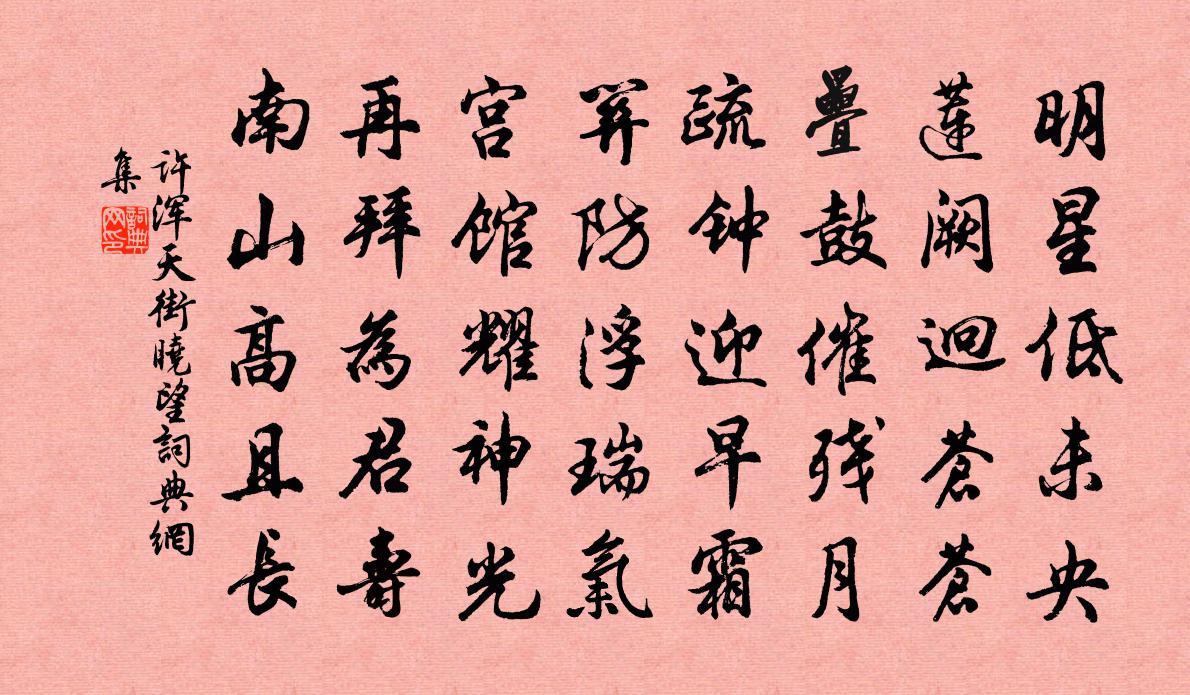 明星低未央
蓮阙迥蒼蒼
疊鼓催残月
疏钟迎早霜
关防浮瑞氣
宫馆耀神光
再拜為君壽
南山高且長
许渾天街曉望詞典網
集
詞典网印